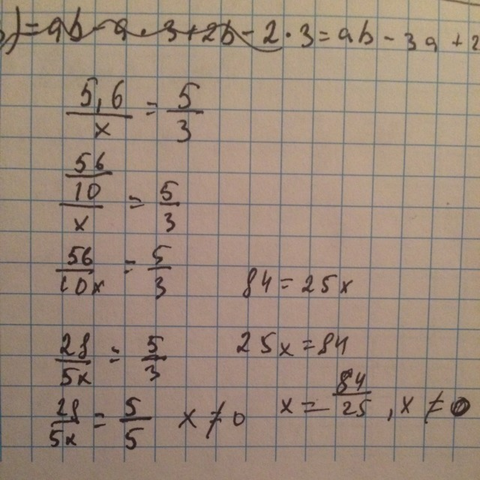 )=ab-a·3+2b-2·3=ab-3a+2
5,6/x = 5/3
56/10/x = 5/3
56/10x = 5/3
28/5x = 5/3
28/5x = 5/5 x≠0
84=25x
25x=84
x=84/25, x≠0